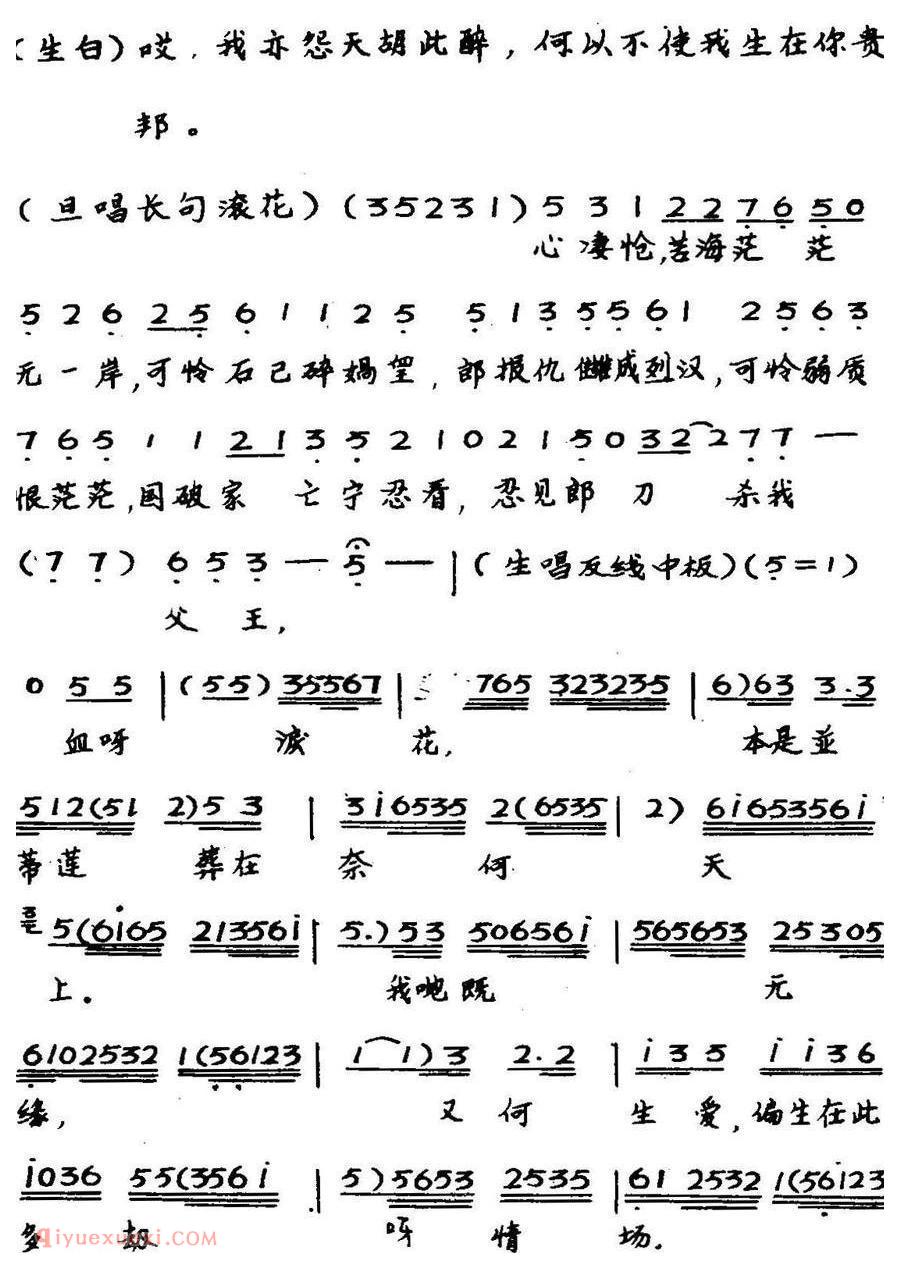 （生白）哎，我亦怨天胡此醉，何以不使我生在你贵
邦。
（旦唱长句滚花）（35231）5 3 1 2 2 7 6 5 0
心凄怆，苦海茫 茫
5 2 6 2 5 6 1 1 2 5 5 1 3 5 5 6 1 2 5 6 3
无一岸，可怜石已碎娲皇，郎报仇雠成烈汉，可怜弱质
7 6 5 1 1 2 1 3 5 2 1 0 2 1 5 0 3 2 2 7 7 —
恨茫茫，国破家 亡宁忍看，忍见郎 刀 杀我
（7 7）6 5 3 — 5 — |（生唱反线中板）（5=1）
父 王，
0 5 5 |（5 5）35567 | 765 323235 | 6）63 3.3
血呀 泪 花， 本是並
512（51 2）5 3 | 3i6535 2（6535 | 2）6i65356i
蒂莲 葬在 奈 何 天
5（6i65 21356i | 5.）53 50656i | 565653 25305
上。 我哋既 无
6102532 1（56123 | 1 1）3 2.2 | i35 ii36
缘， 又何 生 爱，偏生在此
i036 55（356i | 5）5653 2535 | 61 2532 1（56i23
多 劫 呀 情 场。
Qiyuexuexi.com